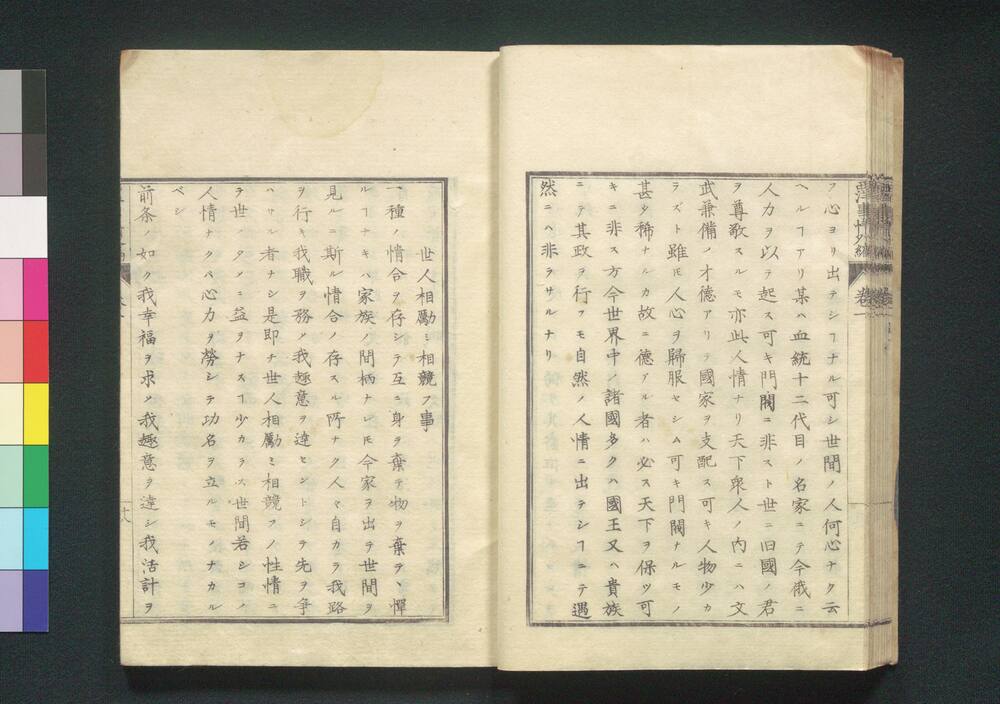 西洋事情外編 卷之一
フ心ヨリ出テシヿナル可シ世間ノ人何心ナク云
ヘルヿアリ某ハ血統十二代目ノ名家ニテ今俄ニ
人力ヲ以テ起ス可キ門閥ニ非スト世ニ旧國ノ君
ヲ尊敬スルモ亦此人情ナリ天下衆人ノ内ニハ文
武兼備ノ才德アリテ國家ヲ支配ス可キ人物少カ
ラズト雖𪜈人心ヲ歸服セシム可キ門閥ナルモノ
甚タ稀ナルカ故ニ德アル者ハ必ス天下ヲ保ツ可
キニ非ス方今世界中ノ諸國多クハ國王又ハ貴族
ニテ其政ヲ行フモ自然ノ人情ニ出テシヿニテ遇
然ニハ非ラサルナリ
世人相勵ミ相競フ事
一種ノ情合ヲ存シテ互ニ身ヲ棄テ物ヲ棄テヽ憚
ルヿナキハ家族ノ間柄ナレ𪜈今家ヲ出テ世間ヲ
見ルニ斯ル情合ノ存スル所ナク人々自カラ我路
ヲ行キ我職ヲ務メ我趣意ヲ達セントシテ先ヲ爭
ハサル者ナシ是即チ世人相勵ミ相競フノ性情ニ
テ世ノタメニ益ヲナスヿ少カラス世間若シコノ
人情ナクベ心力ヲ勞シテ功名ヲ立ルモノナカル
ベシ
前条ノ如ク我幸福ヲ求メ我趣意ヲ達シ我活計ヲ